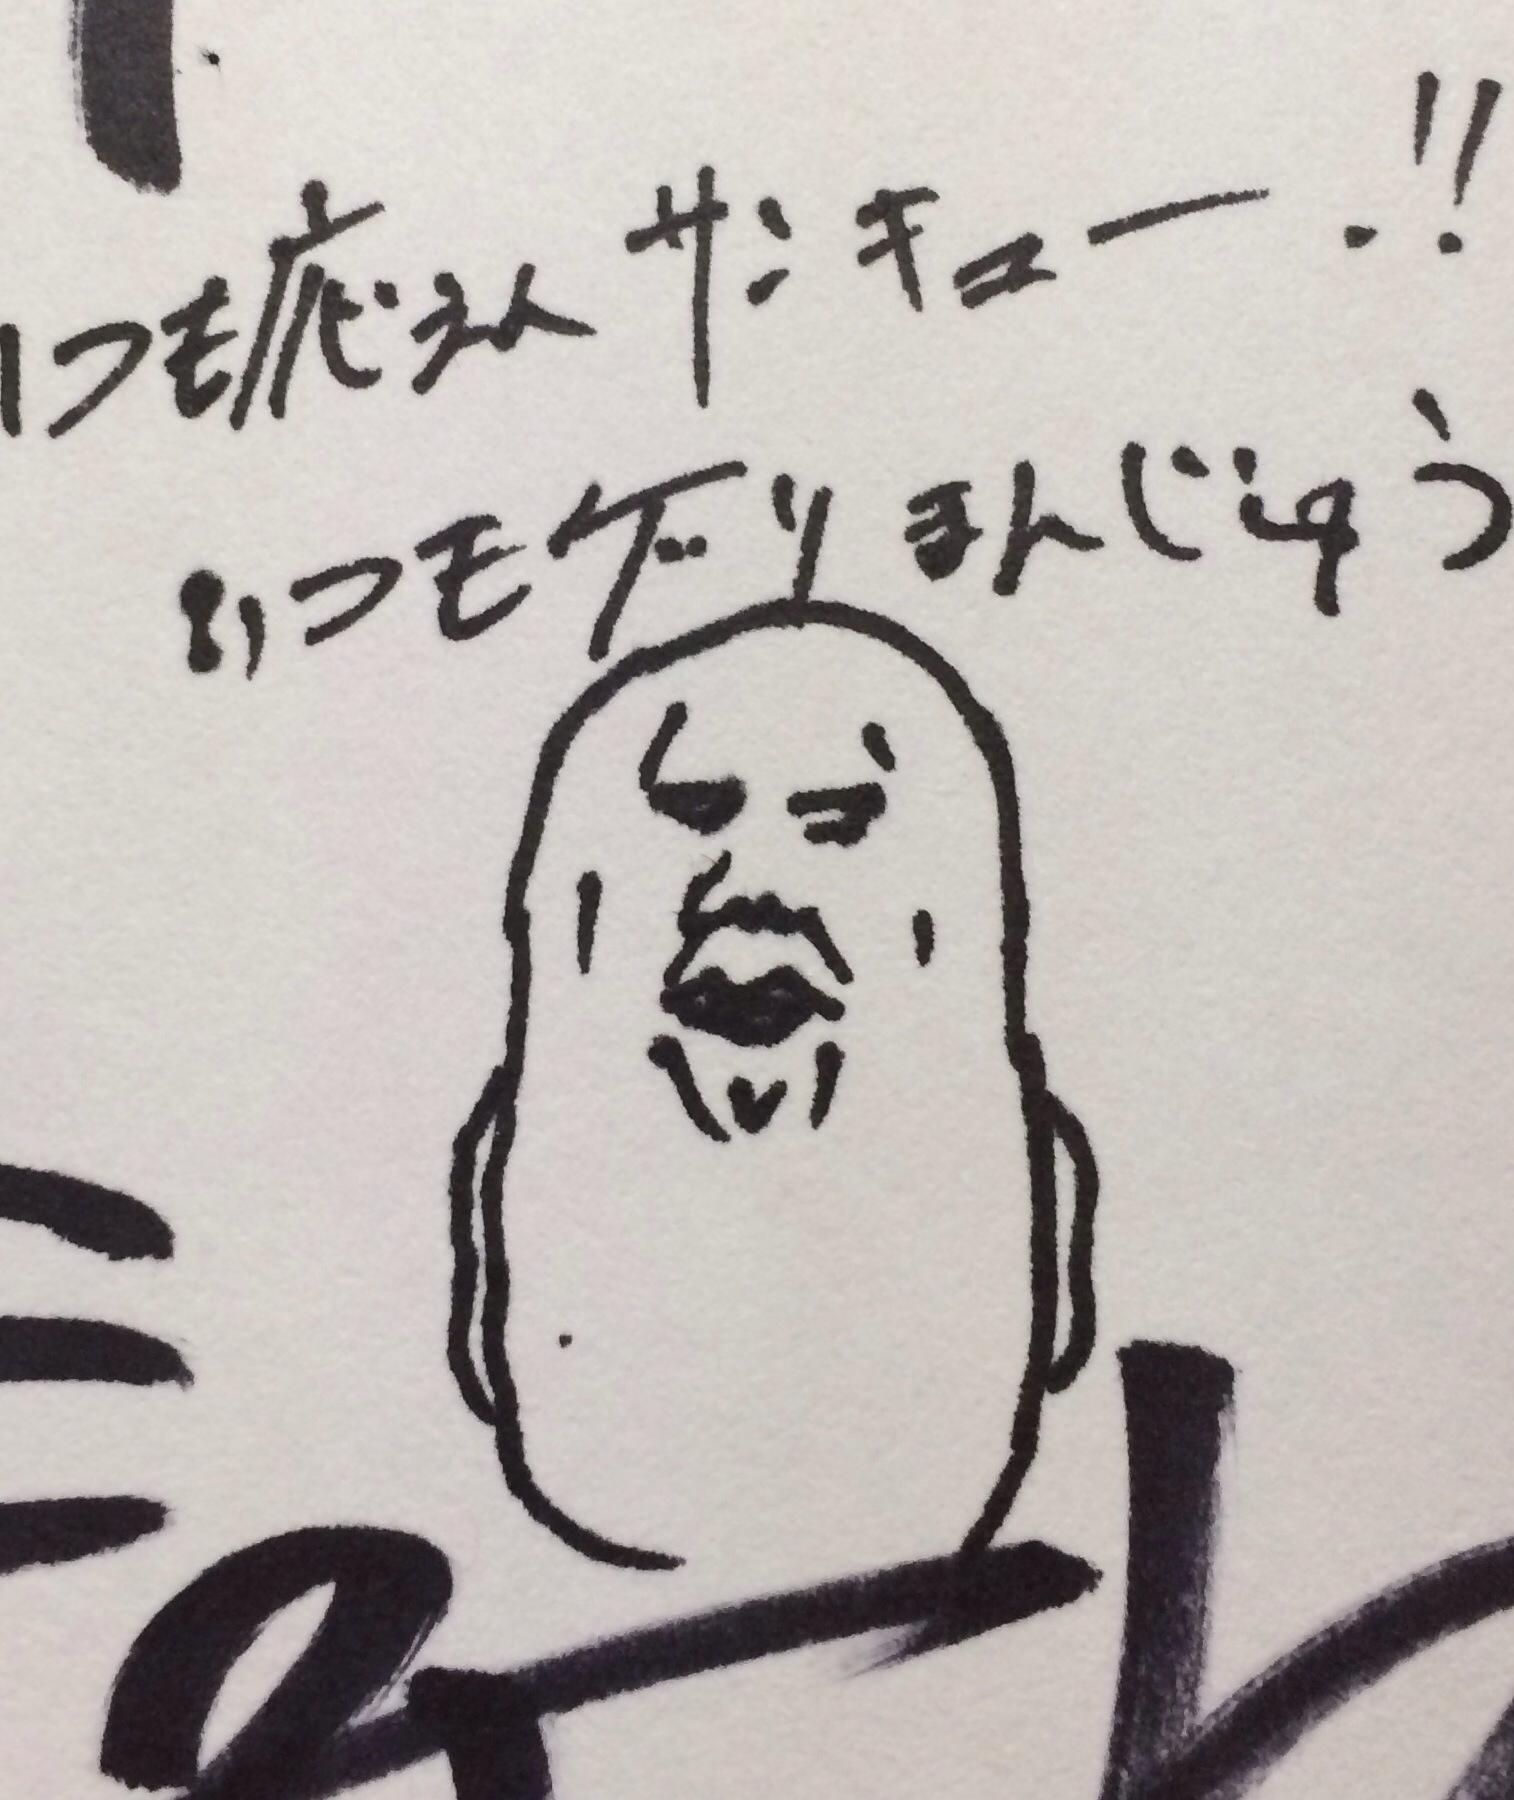 いつモ応えん サンキュー!!
いつモゲリまんじゅう